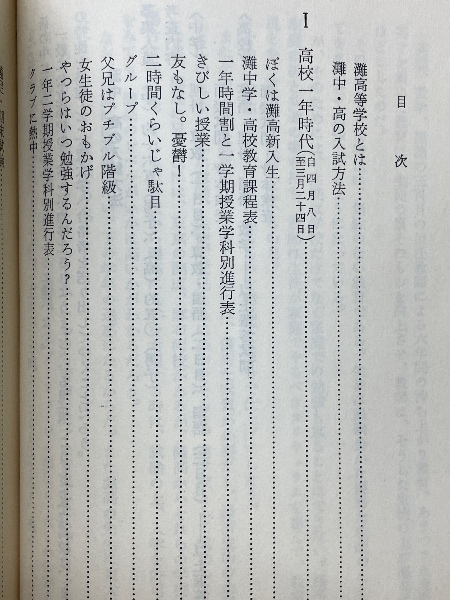 目次
灘高等学校とは
灘中・高の入試方法
Ⅰ 高校一年時代(自四月八日 至三月二十四日)
ぼくは灘高新入生
灘中学・高校教育課程表
一年時間割と一学期授業学科別進行表
きびしい授業
友もなし。憂鬱!
二時間くらいじゃ駄目
グループ
父兄はプチブル階級
女生徒のおもかげ
やつらはいつ勉強するんだろう?
一年二学期授業学科別進行表
クラブに熱中